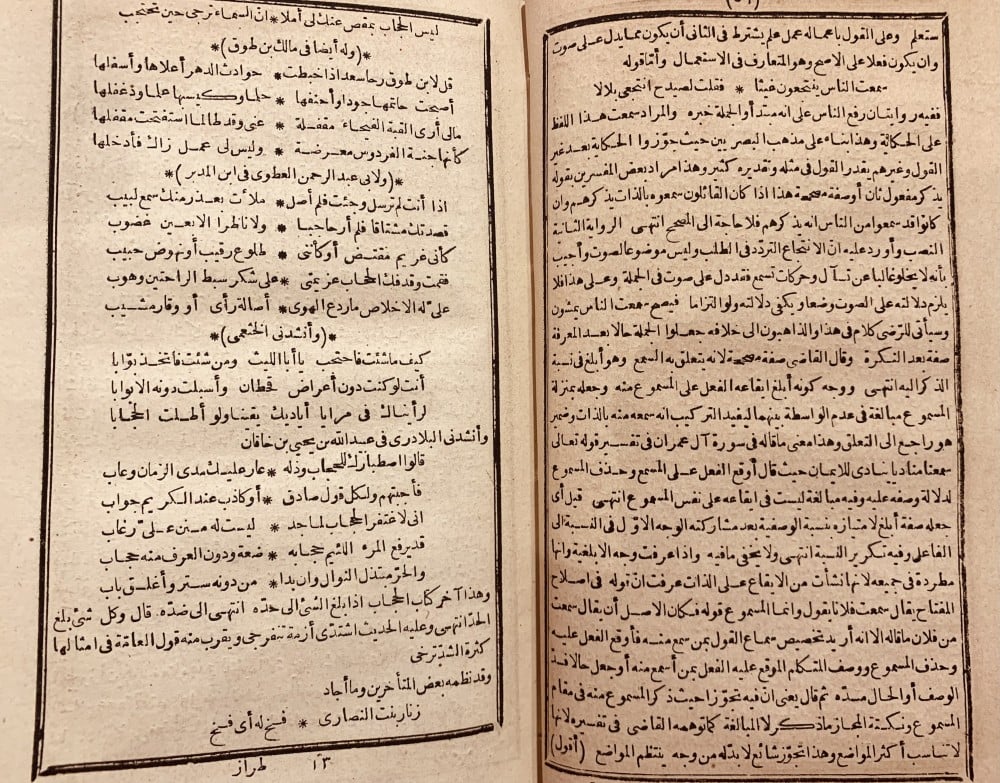 ستعلم وعلى القول باعماله عمل علم يشترط فى الثانى أن يكون مما يدل على صوت
وان يكون فعلا على الاصح وهو المتعارف فى الاستعمال وأما قوله
سمعت الناس ينتجعون غيثا * فقلت لصيدح انتجعى بلالا
ففيه روايتان رفع الناس على انه مبتدأ والجملة خبره والمراد سمعت هذا اللفظ
على الحكاية وهذا بناء على مذهب البصريين حيث جوّزوا الحكاية بعد غير
القول وغيرهم يقدر القول فى مثله وتقديره كثير وهذا مراد بعض المفسرين بقوله
يذكر مفعول ثان أو صفة مصححة هذا اذا كان القائلون سمعوه بالذات يذكرهم وان
كانوا قد سمعوا من الناس انه يذكرهم فلا حاجة الى المصحح انتهى الرواية الثانية
النصب وأورد عليه انّ الانتجاع التردّد فى الطلب وليس موضوعا لصوت وأجيب
بأنه لا يخلو غالبا عن وحركات تسمع فقد دل على صوت فى الجملة وعلى هذا فلا
يلزم دلالته على الصوت وضعا ويكفى دلالته ولو التزاما فيصح سمعت الناس يمشون
وسيأتى للرّضى كلام فى هذا والذاهبون الى خلافه جعلوا الجملة حالا بعد المعرفة
صفة بعد النكرة وقال القاضى صفة مصححة لانه يتعلق به السمع وهو أبلغ فى نسبة
الذكر اليه انتهى ووجه كونه أبلغ ايقاعه الفعل على المسموع منه وجعله بمنزلة
المسموع مبالغة فى عدم الواسطة بينهما ليفيد التركيب انه سمعه منه بالذات وضمير
هو راجع الى التعلق وهذا معنى ما قاله فى سورة آل عمران فى تفسير قوله تعالى
سمعنا مناديا ينادى للايمان حيث قال أوقع الفعل على المسمع وحذف المسموع
لدلالة وصفه عليه وفيه مبالغة ليست فى ايقاعه على نفس المسموع انتهى قيل أى
جعله صفة أبلغ لامتيازه بنسبة الوصفية بعد مشاركته الوجه الاوّل فى النسبة الى
الفاعل وفيه تكرير النسبة انتهى ولا يخفى ما فيه واذا عرفت وجه الابلغية وانها
مطردة فى جميعه لانها نشأت من الايقاع على الذات عرفت انّ قوله فى اصلاح
المفتاح يقال سمعت فلانا يقول وانما المسموع قوله فكان الاصل أن يقال سمعت
من فلان ما قاله الا انه أريد تخصيص سماع القول بمن سمع منه فأوقع الفعل عليه
وحذف المسموع ووصف المتكلم الموقع عليه الفعل بمن أسمع منه أو جعل حالا فسدّ
الوصف أو الحال مسدّه ثم قال يعنى انّ فيه تجوّزا حيث ذكر المسموع منه فى مقام
المسموع ونكتة المجاز ما ذكر لا المبالغة كما توهمه القاضى فى تفسيره لانها
لا تناسب أكثر المواضع وهذا التجوّز شائع لا بدّ له من وجه ينتظم المواضع (أقول)
ليس الحجاب بمقص عنك لى أملا * انّ السماء ترجى حين تحتجب
*(وله أيضا فى مالك بن طوق)*
قل لابن طوق رحا سعد اذا خبطت * حوادث الدهر أعلاها وأسفلها
أصبحت حاتمها جودا وأحنفها * حلما وكيسها علما ودغفلها
مالى أرى القبة الفيحاء مقفلة * عنى وقد طالما استفتحت مقفلها
كأنها جنة الفردوس معرضة * وليس لى عمل زاك فأدخلها
*(ولابى عبد الرحمن العطوى فى ابن المدبر)*
اذا أنت لم ترسل وجئت فلم أصل * ملأت بعذر منك سمع لبيب
قصدتك مشتاقا فلم أر حاجبا * ولا ناظرا الا بعين غضوب
كأنى غريم مقتض أو كأننى * طلوع رقيب أو نهوض حبيب
فقمت وقد فك الحجاب عزيمتى * على شكر سبط الراحتين وهوب
علىّ له الاخلاص ما ردع الهوى * أصالة رأى أو وقار مشيب
*(وأنشدنى الخثعمى)*
كيف ما شئت فاحتجب يا أبا الليث ومن شئت فاتخذ بوّابا
أنت لو كنت دون أعراض قحطان وأسبلت دونه الابوابا
لرأيناك فى مرايا أياديك يقينا ولو أطلت الحجابا
وأنشدنى البلاذرى فى عبد الله بن يحيى بن خاقان
قالوا اصطبارك للحجاب وذله * عار عليك مدى الزمان وعاب
فأجبتهم ولكل قول صادق * أو كاذب عند الكريم جواب
انى لاغتفر الحجاب لماجد * ليست له منن علىّ رغاب
قد يرفع المرء اللئيم حجابه * ضعة ودون العرف منه حجاب
والحرّ مبتذل النوال وان بدا * من دونه ستر وأغلق باب
وهذا آخر كتاب الحجاب اذا بلغ الشئ الى حدّه انتهى الى ضدّه. قال وكل شئ بلغ
الحدّ انتهى وعليه الحديث اشتدّى أزمة تنفرجى ويقرب منه قول العامّة فى امثالها
كثرة الشدّ ترخى
وقد نظمه بعض المتأخرين وما أجاد
زنار بنت النصارى * فسخ له أى فسخ
١٣ طراز